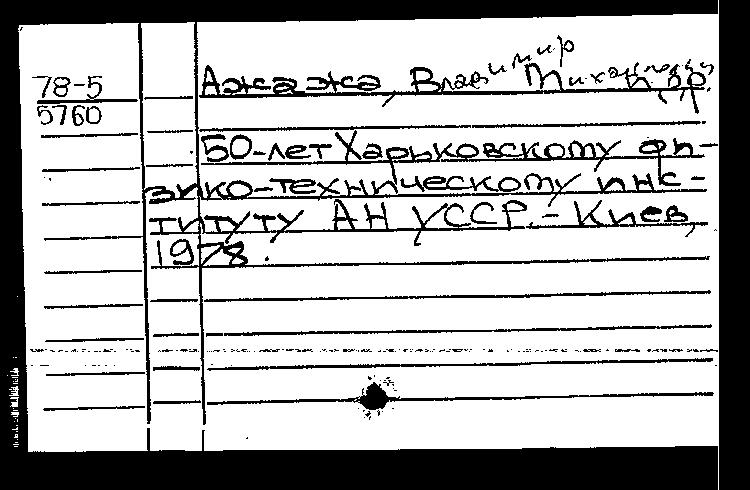 78-5
5760
Ажажа, Владимир Михайлович
и др.
50-лет Харьковскому фи-
зико-техническому инс-
титуту АН УССР. - Киев,
1978.